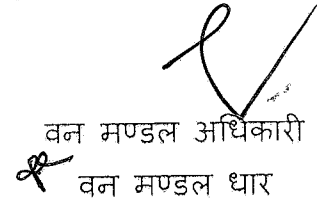 वन मण्डल अधिकारी
वन मण्डल धार